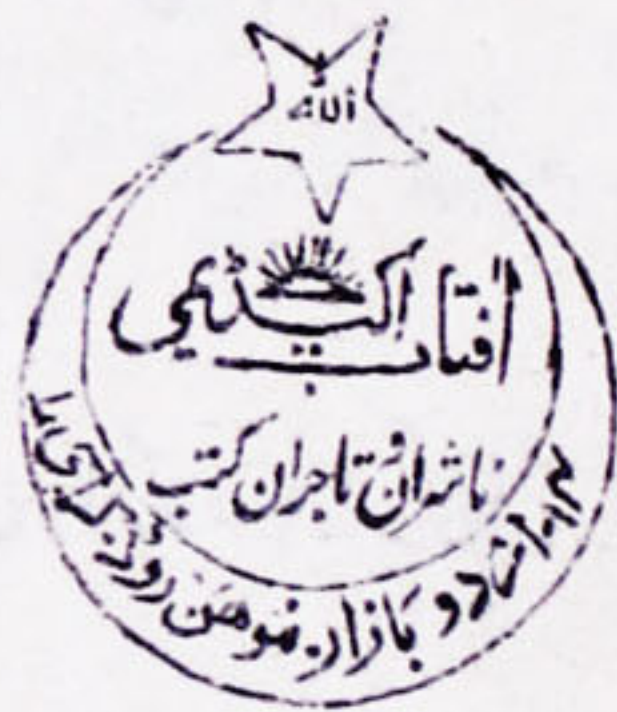 اللہ
آفتاب اکیڈیمی
ناشران و تاجران کتب
بازار۔ موہن روڈ۔ کراچی